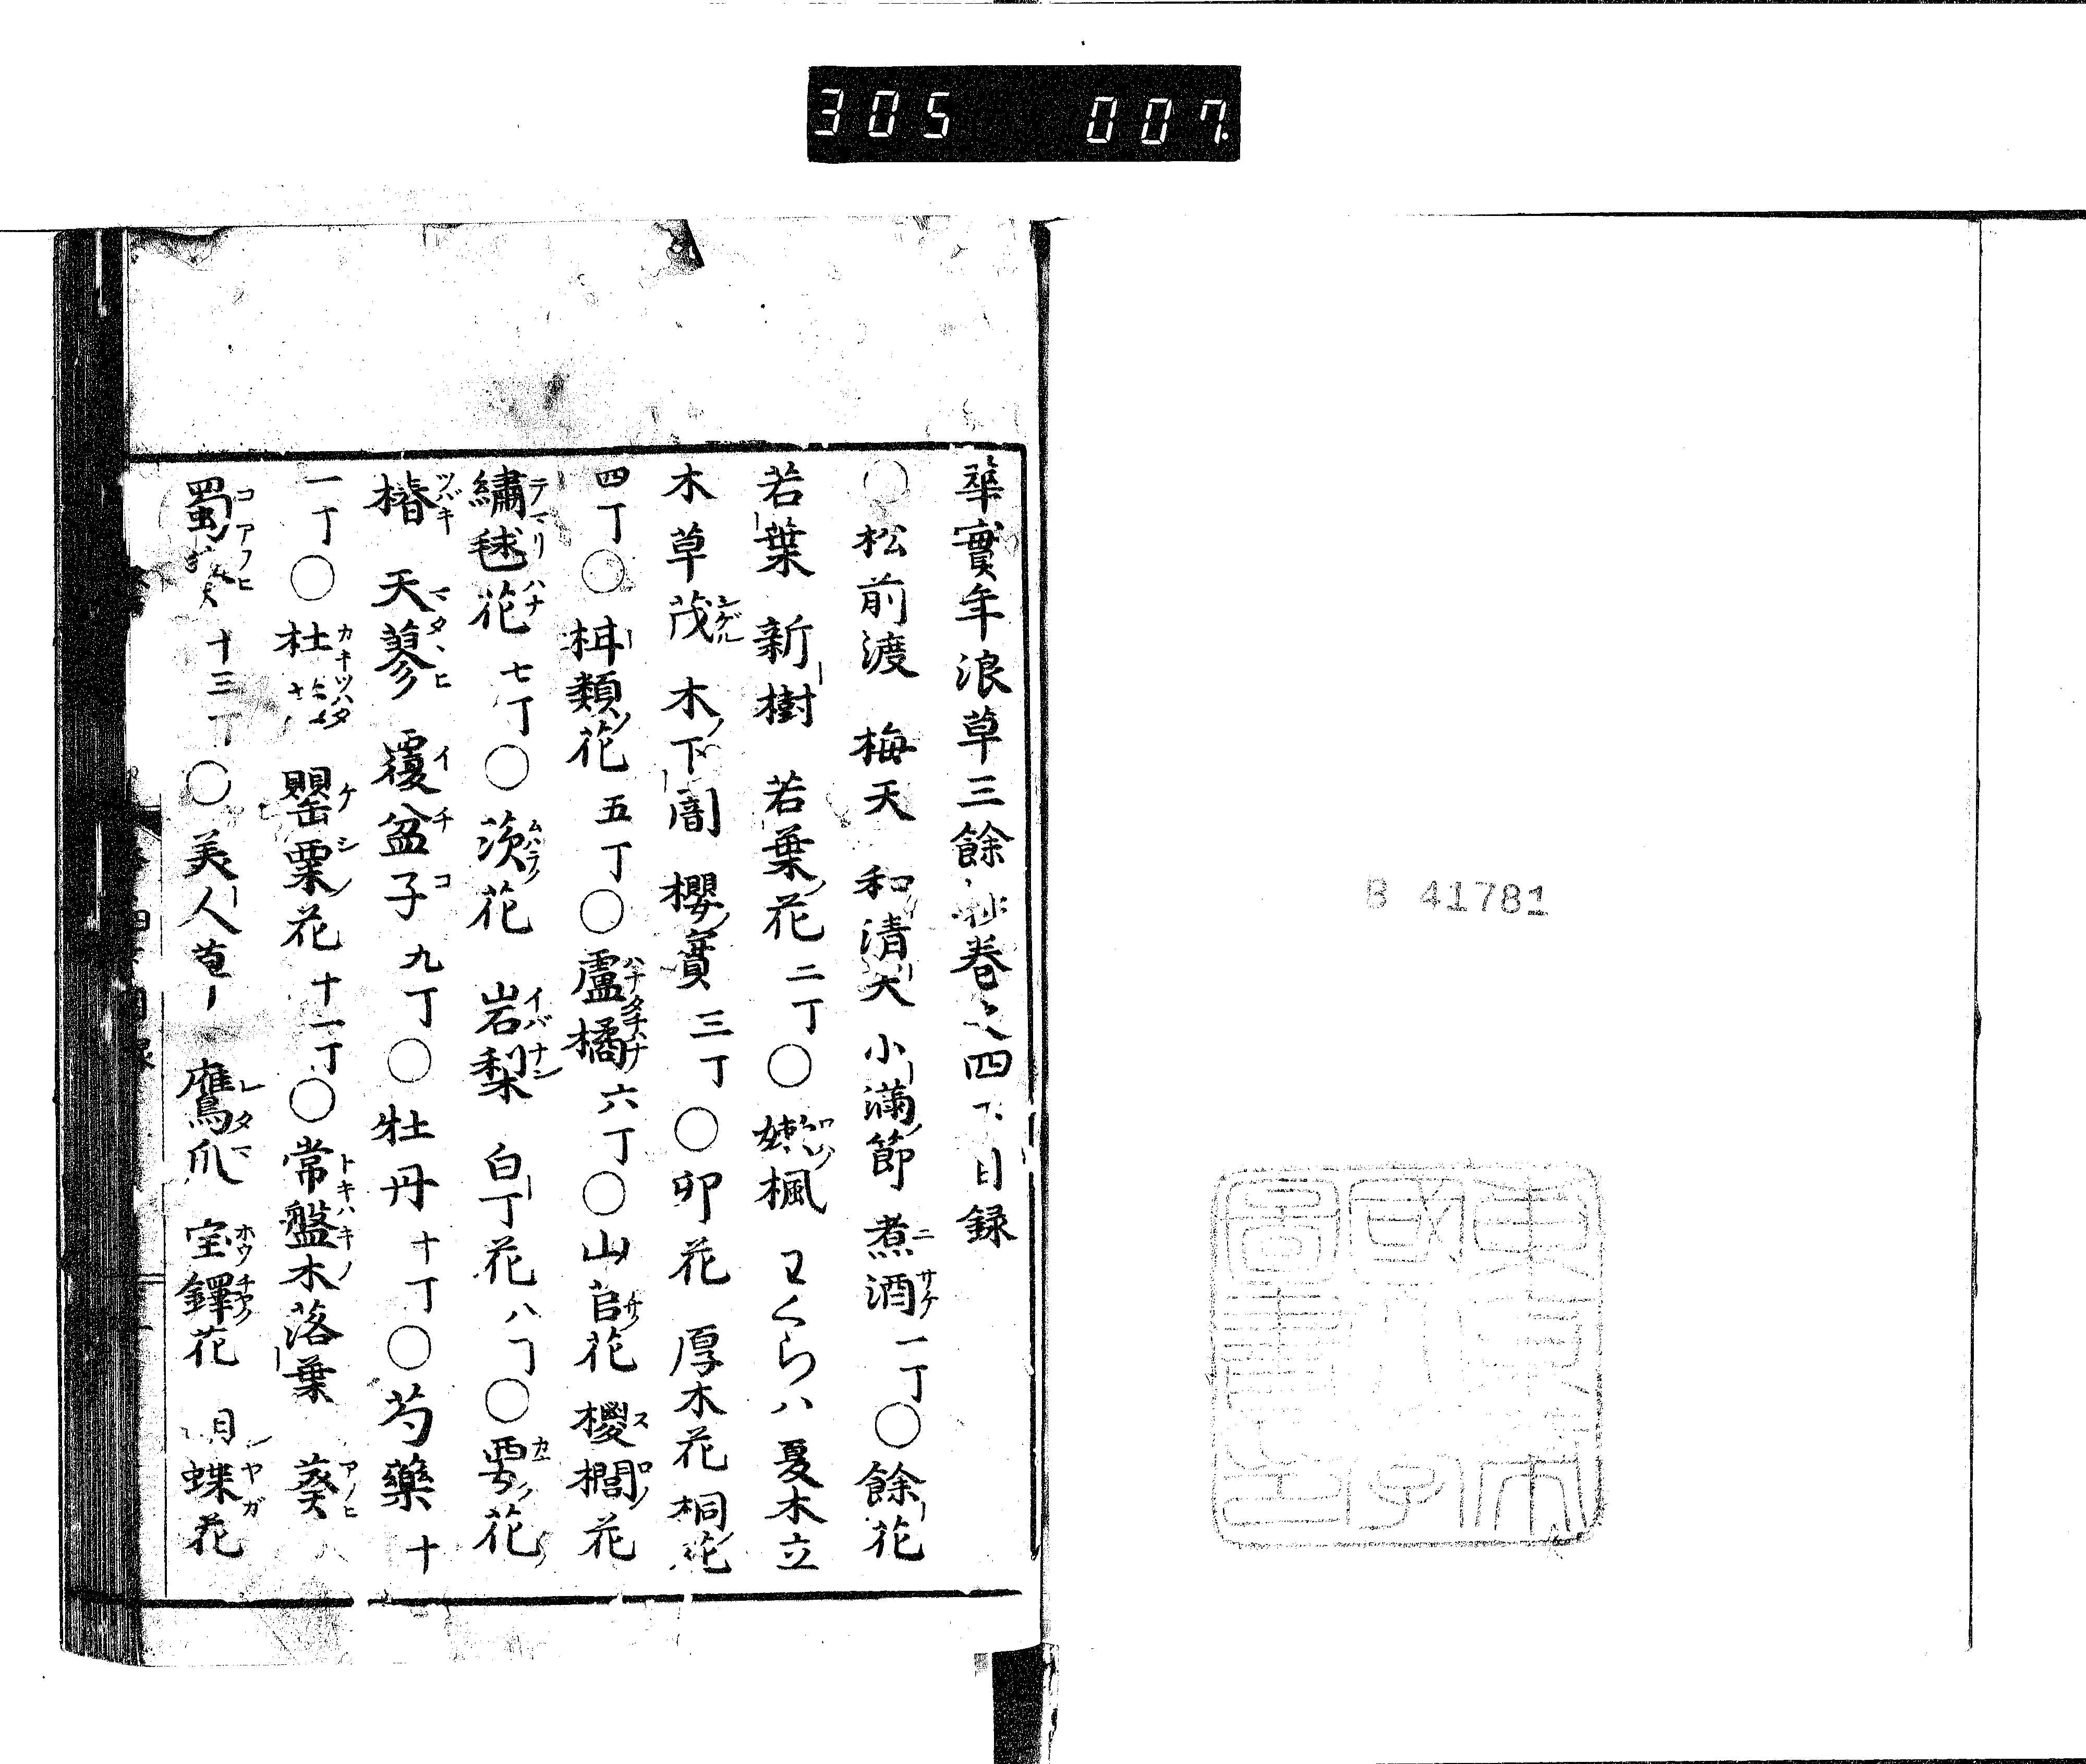 305 007
B 41781
華實年浪草三餘抄卷之四下目録
○松前渡 梅天 和清天 小滿節 煮酒 一丁○餘花
若葉 新樹 若葉花 二丁○嫩楓 わくらハ 夏木立
木草茂 木下闇 櫻實 三丁○卯花 厚木花 桐花
四丁○柑類花 五丁○盧橘 六丁○山花 椶櫚花
繡毬花 七丁○茨花 岩梨 白丁花 八丁○要花
椿 天蓼 覆盆子 九丁○牡丹 十丁○芍藥 十
一丁○杜 罌粟花 十二丁○常盤木落葉 葵
蜀葵 十三丁○美人草 鷹爪 宝鐸花 蝶花